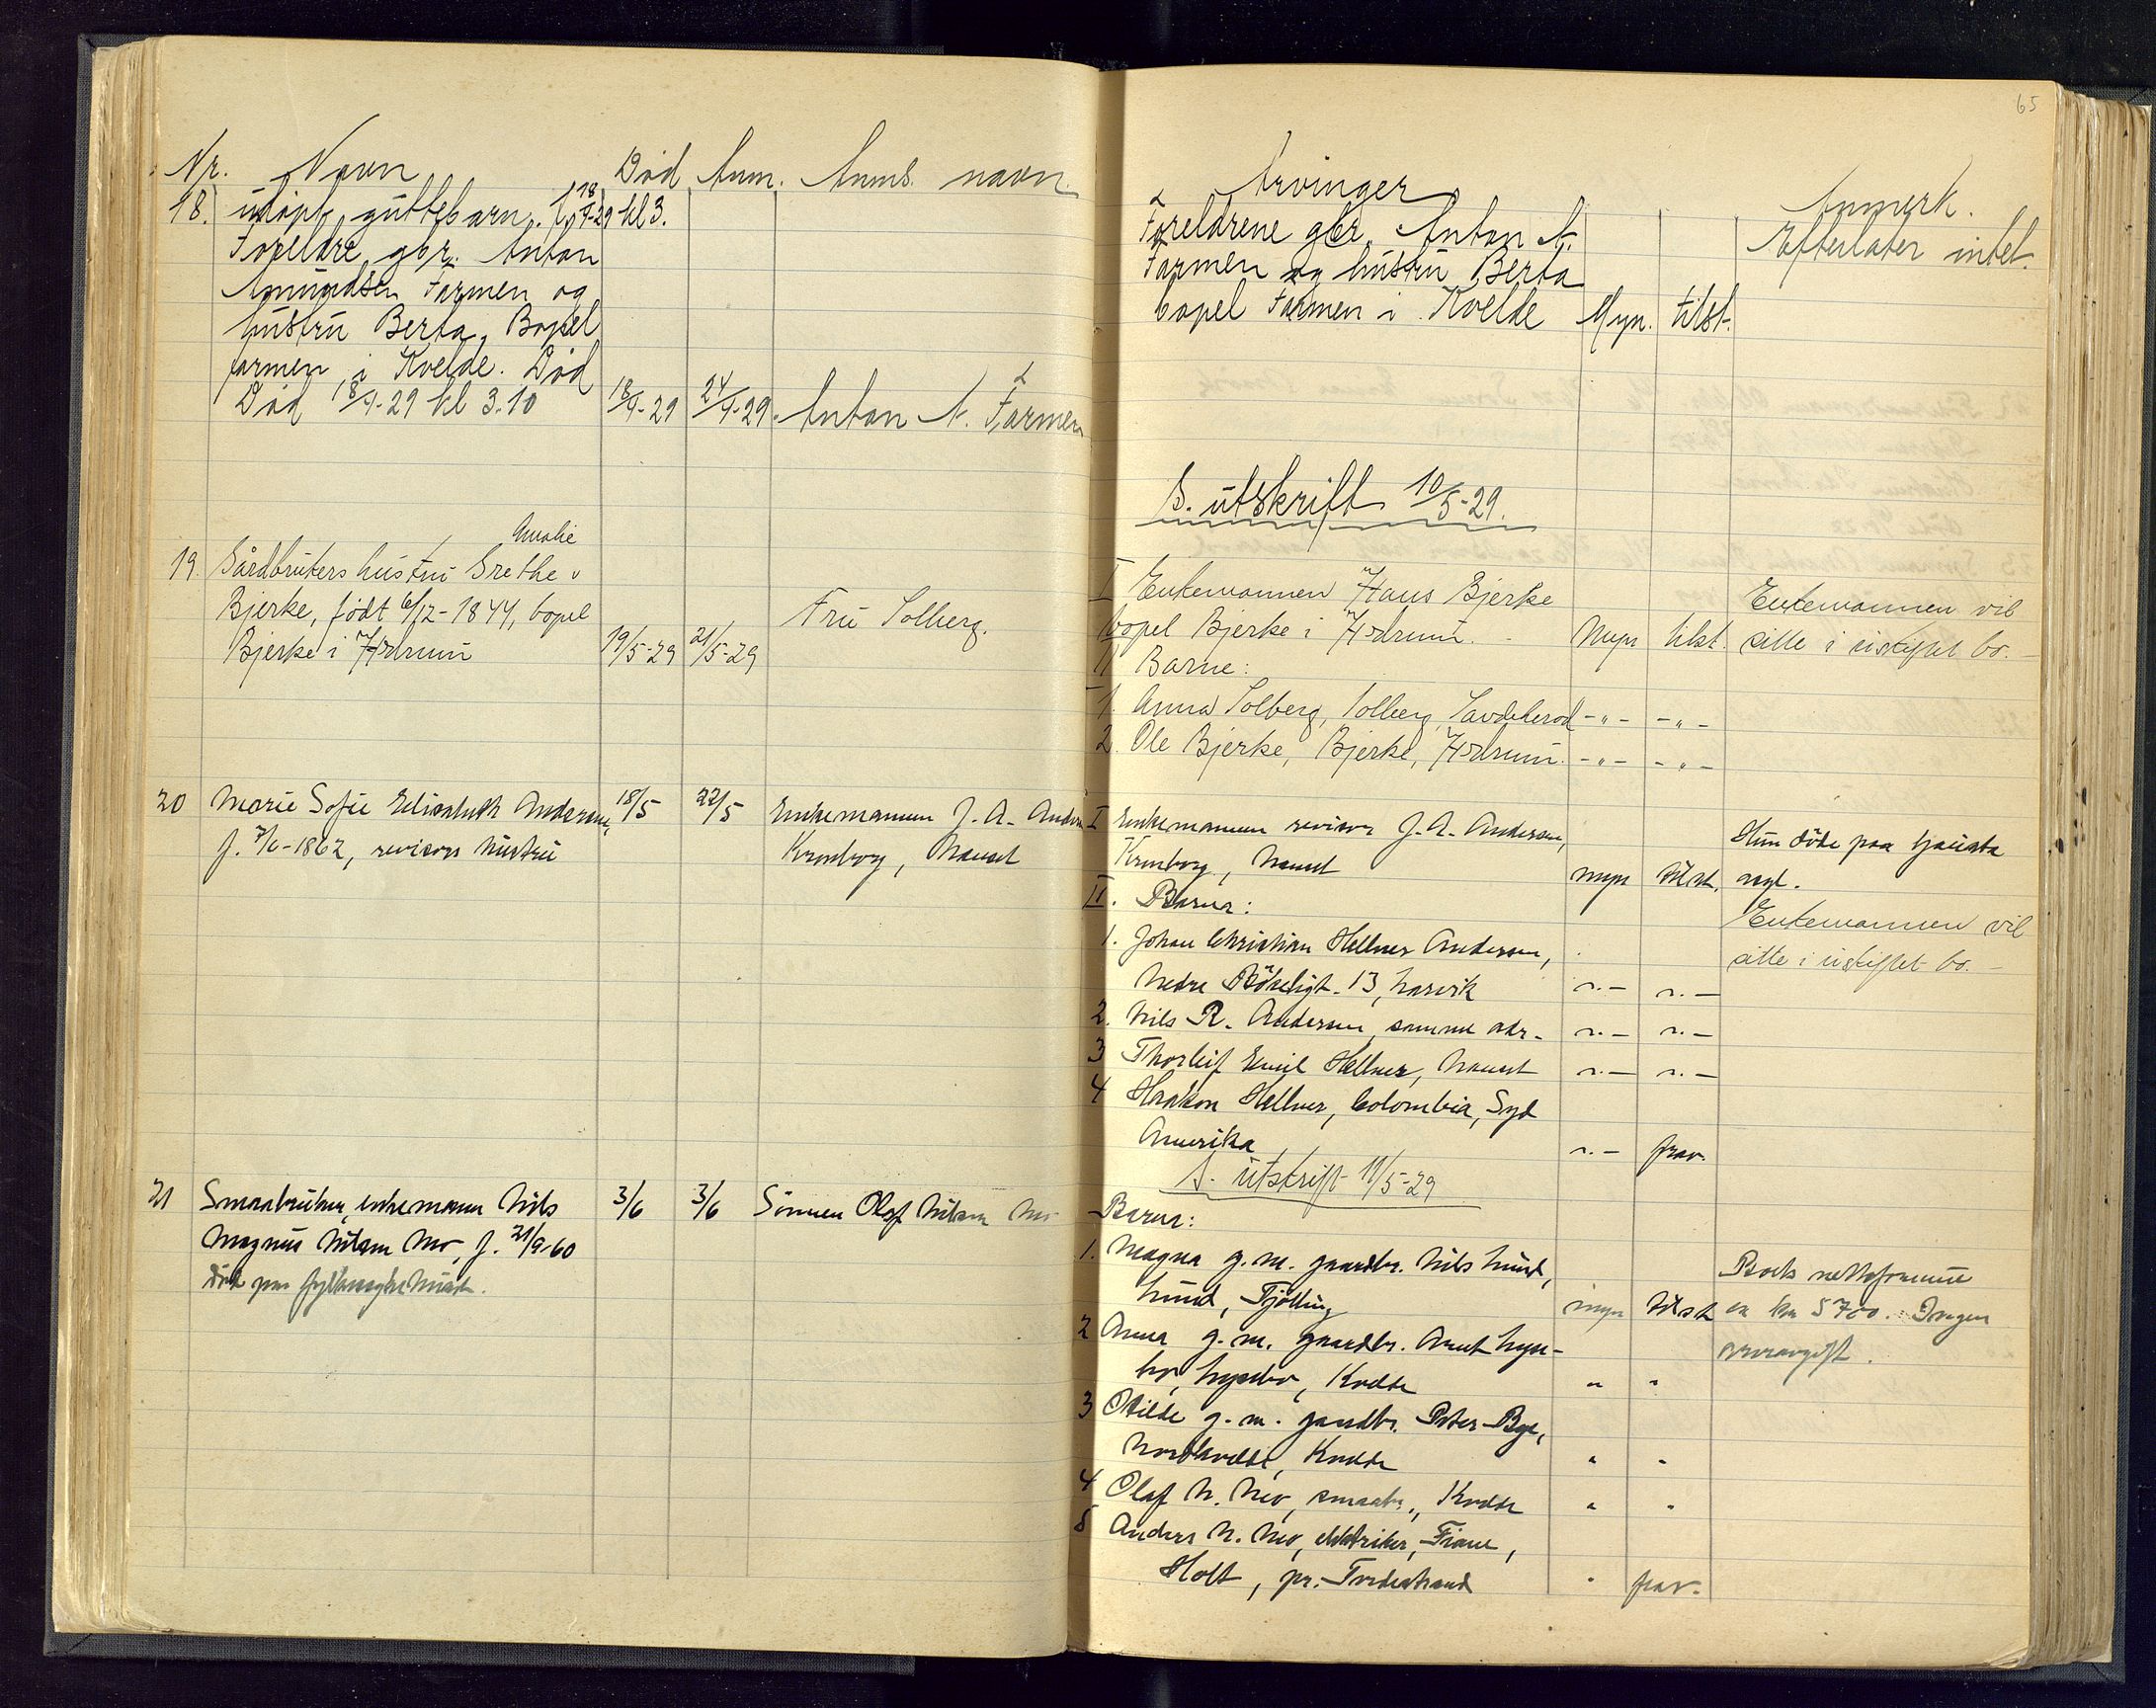 65
Nr. Navn Død Anm. Anms. navn.
18. udøpt guttebarn, f. 18/4-29 kl 3.
Foreldre gbr. Anton
Amundsen Farmen og
hustru Berta, Bopel
farmen i Kvelde. Død
Død 18/4-29 kl 3.10 18/4-29 24/4-29 Anton A. Farmen
Amalie
19. Gårdbrukers hustru Grethe v
Bjerke, født 6/12-1844, bopel Fru Solberg.
Bjerke i Hedrum 19/5-29 21/5-29
20 Marie Sofie Elisabeth Andersen, 18/5 22/5 Enkemannen J. A. Andersen
f. 7/6-1862, revisors hustru Kronborg, Nanset
21 Smaabruker, enkemann Nils 3/6 3/6 Sønnen Olaf Nilsen Mo
Magnus Nilsen Mo, f. 21/9-60
død paa fylkessykehuset.
Arvinger Anmerk.
Foreldrene gbr. Anton A. Efterlater intet.
Farmen og hustru Berta
bopel Farmen i Kvelde Myn. tilst.
S. utskrift 10/5-29.
I Enkemannen Hans Bjerke Enkemannen vil
bopel Bjerke i Hedrum. - Myn tilst. sitte i uskiftet bo. -
II Barne:
1. Anna Solberg, Solberg, Sandeherod -"- -"-
2. Ole Bjerke, Bjerke, Hedrum. -"- -"-
I Enkemannen revisor J. A. Andersen, Hun döde paa Tjøllinga
Kronborg, Nanset myn tilst.
II. Barna: Enkemannen vil
1. Johan Christian Hellner Andersen, sitte i uskiftet bo. -
Nedre Bökeligt. 13, Larvik "- "-
2. Nils R. Andersen, samme adr- "- "-
3 Thorleif Emil Hellner, Nanset "- "-
4 Haakon Hellner, Colombia, Syd
Amerika "- frav.
S. utskrift 11/5-29
Barna:
1. Magna g. m. gaardbr. Nils Lund, Boets nettoformue
Lund, Tjölling myn tilst er kr 5700. Ingen
2 Anna g. m. gaardbr. Arnt Lyse- arveavgift.
bo, Lysebo, Kvelde " "
3 Otilde g. m. gaardbr. Peter Bye,
Nordkvelde, Kvelde " "
4 Olaf N. Mo, smaabr., Kvelde " "
5 Anders N. Mo, elektriker, Fiane,
Holt, pr. Tvedestrand " frav.